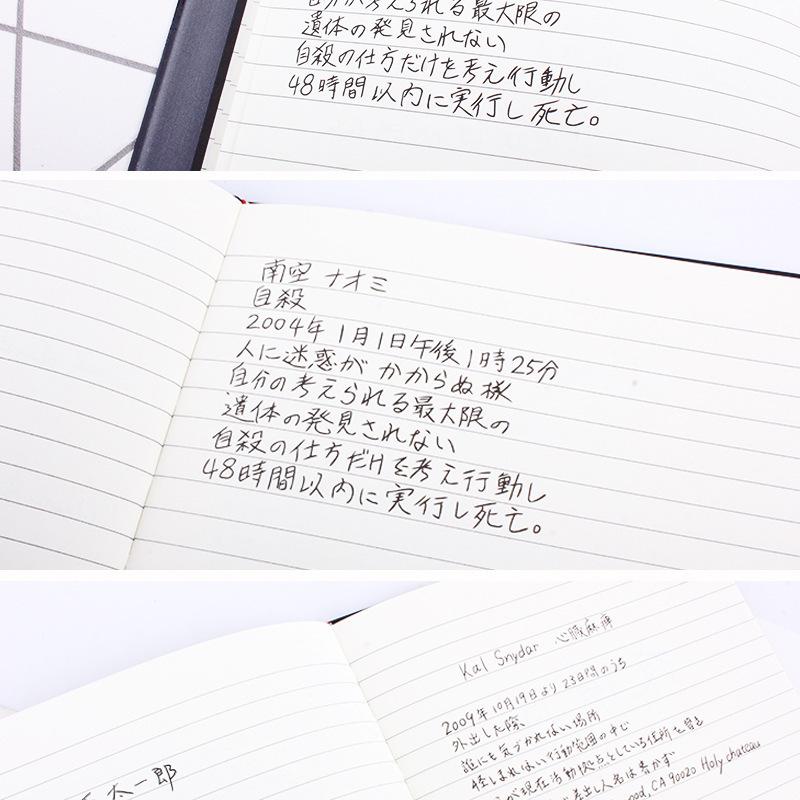 自分が考えられる最大限の
遺体の発見されない
自殺の仕方だけを考え行動し
48時間以内に実行し死亡。
南空 ナオミ
自殺
2004年1月1日午後1時25分
人に迷惑がかからぬ様
自分の考えられる最大限の
遺体の発見されない
自殺の仕方だけを考え行動し
48時間以内に実行し死亡。
Kal Snydar 心臓麻痺
2009年10月19日より23日間のうち
外出した際、
誰にも気づかれない場所
怪しまれない行動範囲の中で
が現在活動拠点としている住所を
差出し人名は書かず
ood, CA 90020 Holy chateau
太一郎